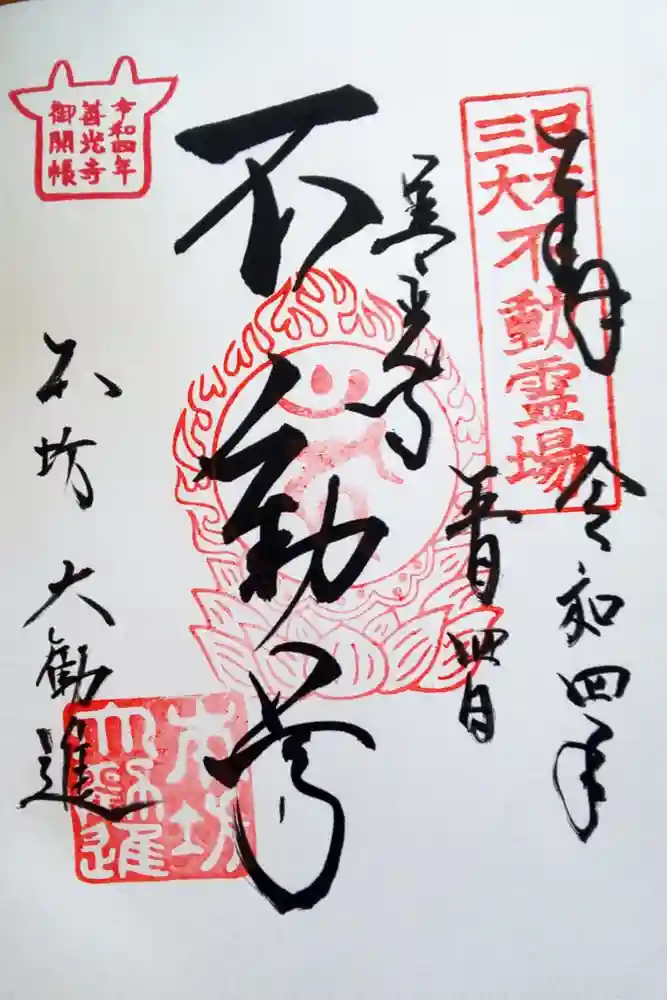 奉拝
令和四年
日本
三大
不動霊場
五月四日
善光寺
不動尊
令和四年
善光寺
御開帳
本坊 大勧進
本坊
大勧進